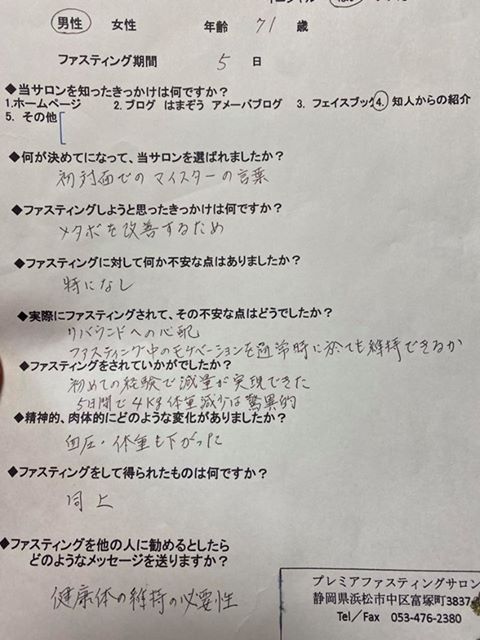 男性 女性 年齢 71 歳
ファスティング期間 5 日
◆当サロンを知ったきっかけは何ですか？
1.ホームページ 2.ブログ はまぞう アメーバブログ 3. フェイスブック 4. 知人からの紹介
5. その他
◆何が決めてになって、当サロンを選ばれましたか？
初対面でのマイスターの言葉
◆ファスティングしようと思ったきっかけは何ですか？
メタボを改善するため
◆ファスティングに対して何か不安な点はありましたか？
特になし
◆実際にファスティングされて、その不安な点はどうでしたか？
リバウンドへの心配
ファスティング中のモチベーションを通常時に於ても維持できるか
◆ファスティングをされていかがでしたか？
初めての経験で減量が実現できた
5日間で4Kg体重減少は驚異的
◆精神的、肉体的にどのような変化がありましたか？
血圧・体重も下がった
◆ファスティングをして得られたものは何ですか？
同上
◆ファスティングを他の人に勧めるとしたら
どのようなメッセージを送りますか？
健康体の維持の必要性
プレミアファスティングサロン
静岡県浜松市中区富塚町3837-
Tel／Fax 053-476-2380